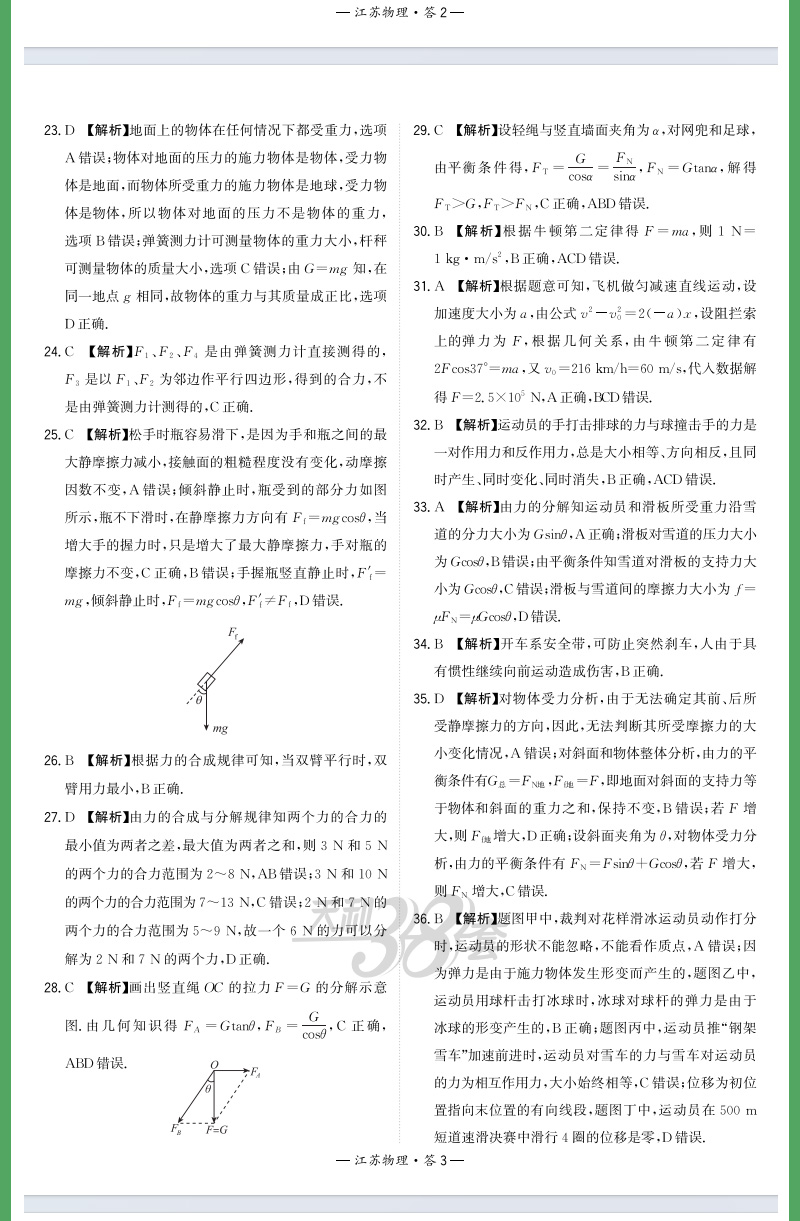 — 江苏物理·答2 —
23. D 【解析】地面上的物体在任何情况下都受重力,选项
A错误;物体对地面的压力的施力物体是物体,受力物
体是地面,而物体所受重力的施力物体是地球,受力物
体是物体,所以物体对地面的压力不是物体的重力,
选项B错误;弹簧测力计可测量物体的重力大小,杆秤
可测量物体的质量大小,选项C错误;由G=mg 知,在
同一地点 g 相同,故物体的重力与其质量成正比,选项
D正确.
24. C 【解析】F₁、F₂、F₄ 是由弹簧测力计直接测得的,
F₃ 是以 F₁、F₂ 为邻边作平行四边形,得到的合力,不
是由弹簧测力计测得的,C正确.
25. C 【解析】松手时瓶容易滑下,是因为手和瓶之间的最
大静摩擦力减小,接触面的粗糙程度没有变化,动摩擦
因数不变,A错误;倾斜静止时,瓶受到的部分力如图
所示,瓶不下滑时,在静摩擦力方向有 Ff=mgcosθ,当
增大手的握力时,只是增大了最大静摩擦力,手对瓶的
摩擦力不变,C正确,B错误;手握瓶竖直静止时,F′f=
mg,倾斜静止时,Ff=mgcosθ,F′f≠Ff,D错误.
Ff
θ
mg
26. B 【解析】根据力的合成规律可知,当双臂平行时,双
臂用力最小,B正确.
27. D 【解析】由力的合成与分解规律知两个力的合力的
最小值为两者之差,最大值为两者之和,则 3 N 和 5 N
的两个力的合力范围为 2～8 N,AB错误;3 N 和 10 N
的两个力的合力范围为 7～13 N,C错误;2 N 和 7 N 的
两个力的合力范围为 5～9 N,故一个 6 N 的力可以分
解为 2 N 和 7 N 的两个力,D正确.
28. C 【解析】画出竖直绳 OC 的拉力 F=G 的分解示意
图.由几何知识得 F_A=Gtanθ,F_B=G/cosθ,C 正确,
ABD错误.
O
F_A
θ
F_B
F=G
29. C 【解析】设轻绳与竖直墙面夹角为α,对网兜和足球,
由平衡条件得,F_T=G/cosα=F_N/sinα,F_N=Gtanα,解得
F_T>G,F_T>F_N,C正确,ABD错误.
30. B 【解析】根据牛顿第二定律得 F=ma,则 1 N=
1 kg·m/s²,B正确,ACD错误.
31. A 【解析】根据题意可知,飞机做匀减速直线运动,设
加速度大小为a,由公式 v²−v₀²=2(−a)x,设阻拦索
上的弹力为 F,根据几何关系,由牛顿第二定律有
2Fcos37°=ma,又 v₀=216 km/h=60 m/s,代入数据解
得 F=2.5×10⁵ N,A正确,BCD错误.
32. B 【解析】运动员的手打击排球的力与球撞击手的力是
一对作用力和反作用力,总是大小相等、方向相反,且同
时产生、同时变化、同时消失,B正确,ACD错误.
33. A 【解析】由力的分解知运动员和滑板所受重力沿雪
道的分力大小为Gsinθ,A正确;滑板对雪道的压力大小
为Gcosθ,B错误;由平衡条件知雪道对滑板的支持力大
小为Gcosθ,C错误;滑板与雪道间的摩擦力大小为 f=
μF_N=μGcosθ,D错误.
34. B 【解析】开车系安全带,可防止突然刹车,人由于具
有惯性继续向前运动造成伤害,B正确.
35. D 【解析】对物体受力分析,由于无法确定其前、后所
受静摩擦力的方向,因此,无法判断其所受摩擦力的大
小变化情况,A错误;对斜面和物体整体分析,由力的平
衡条件有G总=FN地,Ff地=F,即地面对斜面的支持力等
于物体和斜面的重力之和,保持不变,B错误;若 F 增
大,则Ff地增大,D正确;设斜面夹角为θ,对物体受力分
析,由力的平衡条件有 F_N=Fsinθ+Gcosθ,若 F 增大,
则 F_N 增大,C错误.
36. B 【解析】题图甲中,裁判对花样滑冰运动员动作打分
时,运动员的形状不能忽略,不能看作质点,A错误;因
为弹力是由于施力物体发生形变而产生的,题图乙中,
运动员用球杆击打冰球时,冰球对球杆的弹力是由于
冰球的形变产生的,B正确;题图丙中,运动员推“钢架
雪车”加速前进时,运动员对雪车的力与雪车对运动员
的力为相互作用力,大小始终相等,C错误;位移为初位
置指向末位置的有向线段,题图丁中,运动员在 500 m
短道速滑决赛中滑行 4 圈的位移是零,D错误.
天利38套
— 江苏物理·答3 —